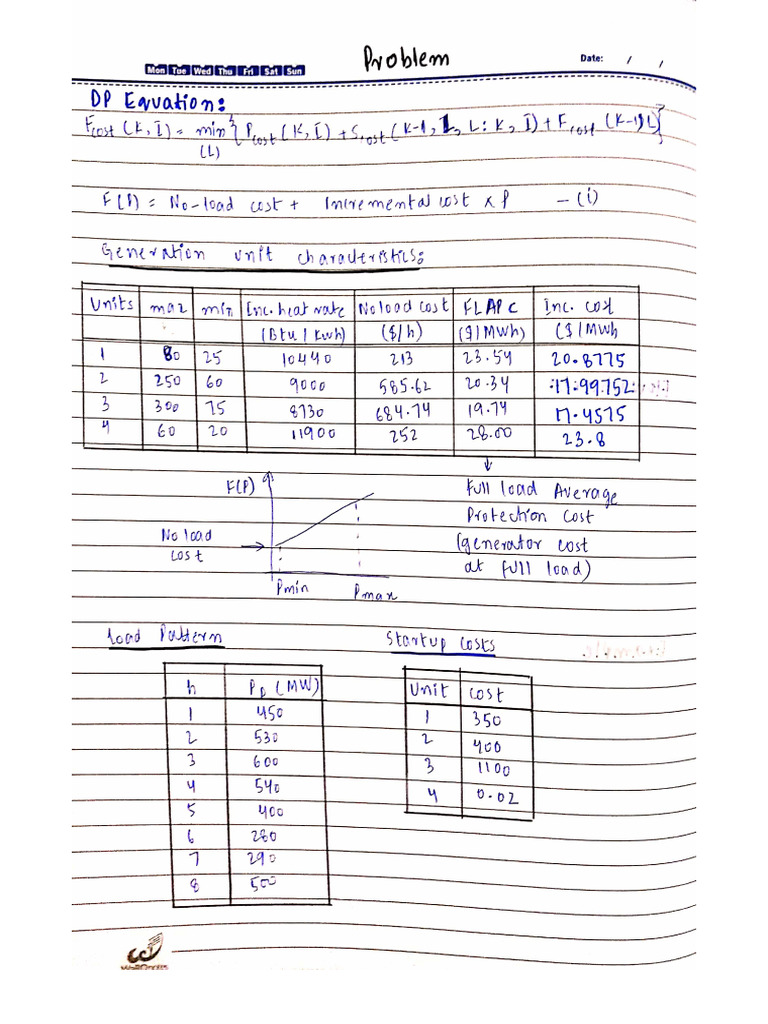 Problem
Mon Tue Wed Thu Fri Sat Sun
Date: / /
DP Equation:
Fcost (K, I) = min { Pcost (K, I) + Scost (K-1, L : K, I) + Fcost (K-1, L) }
(L)
F(P) = No-load cost + Incremental cost x P — (i)
Generation unit characteristics:
Units max min Inc. heat rate No load cost FLAPC Inc. cost
(Btu / kwh) ($/h) ($/MWh) ($/MWh
1 80 25 10440 213 23.54 20.8775
2 250 60 9000 585.62 20.34 17.99752
3 300 75 8730 684.74 19.74 17.4575
4 60 20 11900 252 28.00 23.8
F(P)
No load
cost
Pmin Pmax
Full load Average
Protection Cost
(generator cost
at full load)
Load Pattern
h PD (MW)
1 450
2 530
3 600
4 540
5 400
6 280
7 290
8 500
Startup Costs
Unit Cost
1 350
2 400
3 1100
4 0.02